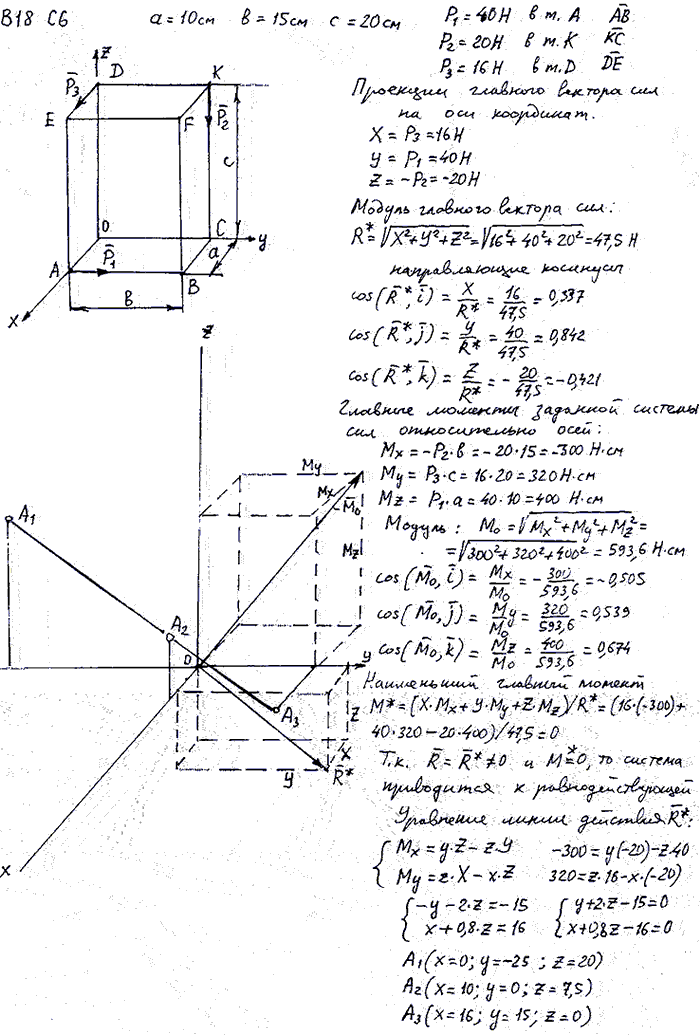 В18 С6 a = 10см в = 15см c = 20см
P₁ = 40Н в т. A A̅B̅
P₂ = 20Н в т. K K̅C̅
P₃ = 16Н в т. D D̅E̅
Проекции главного вектора сил
на оси координат.
X = P₃ = 16Н
Y = P₁ = 40Н
Z = -P₂ = -20Н
Модуль главного вектора сил:
R* = √X²+Y²+Z² = √16²+40²+20² = 47,5 Н
направляющие косинусы
cos(R̅*, i̅) = X/R* = 16/47,5 = 0,337
cos(R̅*, j̅) = Y/R* = 40/47,5 = 0,842
cos(R̅*, k̅) = Z/R* = - 20/47,5 = -0,421
Главные моменты заданной системы
сил относительно осей:
Mx = -P₂·в = -20·15 = -300 Н·см
My = P₃·c = 16·20 = 320 Н·см
Mz = P₁·a = 40·10 = 400 Н·см
Модуль: M₀ = √Mx²+My²+Mz² =
= √300²+320²+400² = 593,6 Н·см
cos(M̅₀, i̅) = Mx/M₀ = - 300/593,6 = -0,505
cos(M̅₀, j̅) = My/M₀ = 320/593,6 = 0,539
cos(M̅₀, k̅) = Mz/M₀ = 400/593,6 = 0,674
Наименьший главный момент
M* = (X·Mx+Y·My+Z·Mz)/R* = (16·(-300)+
40·320-20·400)/47,5 = 0
Т.к. R̅ = R̅* ≠ 0 и M* = 0, то система
приводится к равнодействующей
Уравнение линии действия R̅*:
Mx = y·Z - z·Y -300 = y(-20)-z·40
My = z·X - x·Z 320 = z·16-x·(-20)
-y-2·z = -15 y+2·z-15=0
x+0,8·z = 16 x+0,8z-16=0
A₁(x=0; y=-25; z=20)
A₂(x=10; y=0; z=7,5)
A₃(x=16; y=15; z=0)
z
D
K
P̅₃
P̅₂
E
F
c
O
C
y
A
P̅₁
B
a
x
в
z
My
Mx
M̅₀
A₁
Mz
A₂
O
y
A₃
Z
X
Y
R̅*
x